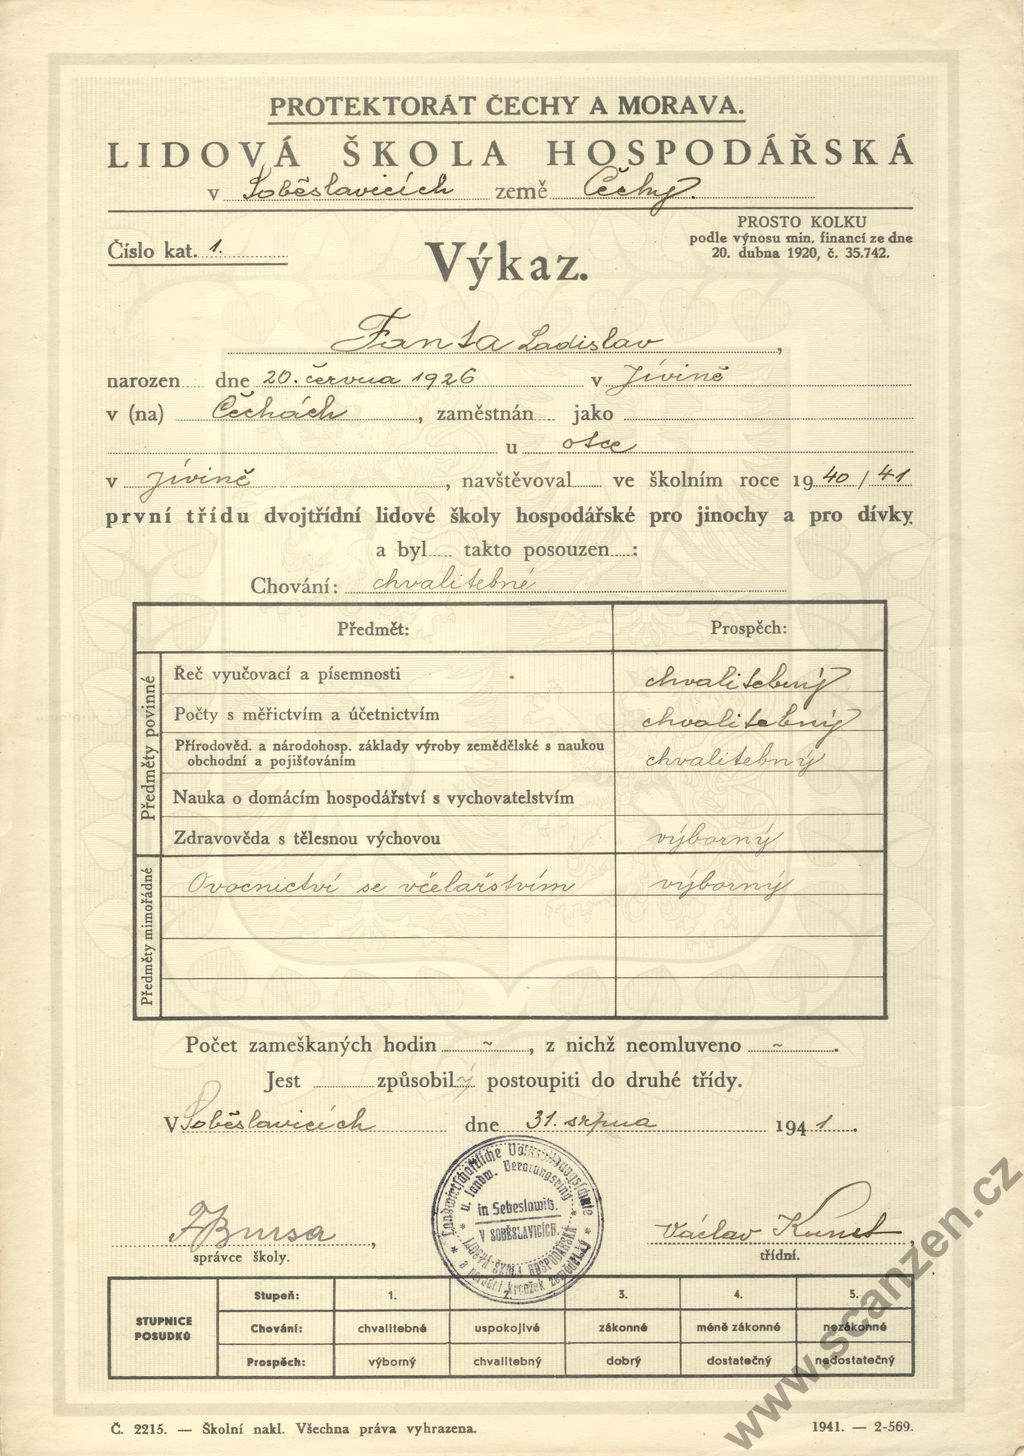 PROTEKTORÁT ČECHY A MORAVA.
LIDOVÁ ŠKOLA HOSPODÁŘSKÁ
v Soběslavicích země Čechy.
Číslo kat. 1.
Výkaz.
PROSTO KOLKU
podle výnosu min. financí ze dne
20. dubna 1920, č. 35.742.
Fanta Ladislav,
narozen dne 20. června 1926 v Jivině
v (na) Čechách, zaměstnán jako
u otce
v Jivině, navštěvoval ve školním roce 1940/41
první třídu dvojtřídní lidové školy hospodářské pro jinochy a pro dívky
a byl takto posouzen:
Chování: chvalitebné
Předmět: Prospěch:
Předměty povinné
Řeč vyučovací a písemnosti chvalitebný
Počty s měřictvím a účetnictvím chvalitebný
Přírodověd. a národohosp. základy výroby zemědělské s naukou
obchodní a pojišťováním chvalitebný
Nauka o domácím hospodářství s vychovatelstvím
Zdravověda s tělesnou výchovou výborný
Předměty mimořádné
Ovocnictví se včelařstvím výborný
Počet zameškaných hodin ~, z nichž neomluveno ~.
Jest způsobilý postoupiti do druhé třídy.
V Soběslavicích dne 31. srpna 1941.
Landwirtschaftliche Volksbildungsschule
u. landw. Beratungsring
in Sebeslawitz.
V SOBĚSLAVICÍCH.
LIDOVÁ ŠKOLA HOSPODÁŘSKÁ
a poradní kroužek zemědělský
F Bursa,
správce školy.
Václav Kunst,
třídní.
STUPNICE
POSUDKŮ
Stupeň: 1. 2. 3. 4. 5.
Chování: chvalitebné uspokojivé zákonné méně zákonné nezákonné
Prospěch: výborný chvalitebný dobrý dostatečný nedostatečný
Č. 2215. — Školní nakl. Všechna práva vyhrazena.
1941. — 2-569.
www.scanzen.cz